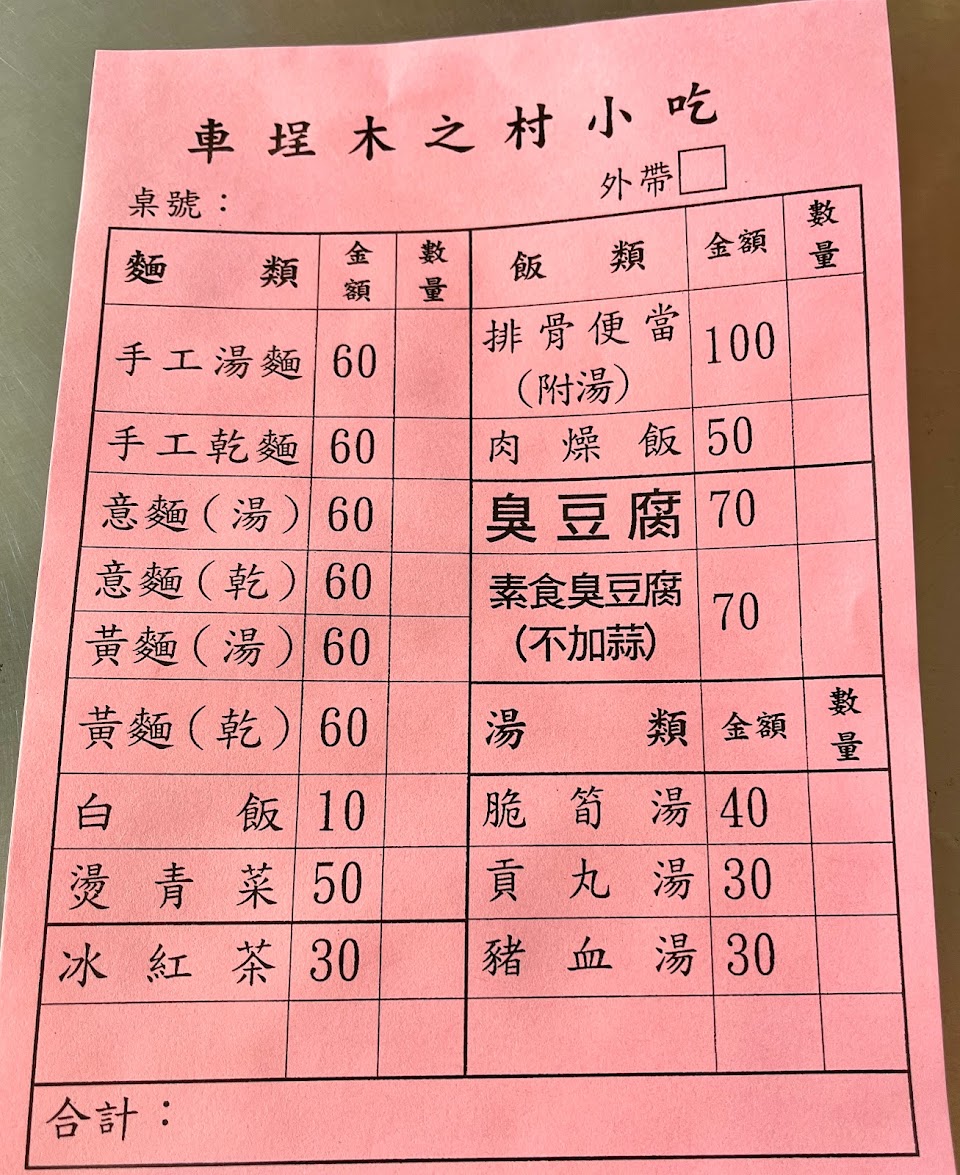 車埕木之村小吃
外帶
桌號：
麵類 金額 數量
手工湯麵 60
手工乾麵 60
意麵(湯) 60
意麵(乾) 60
黃麵(湯) 60
黃麵(乾) 60
白飯 10
燙青菜 50
冰紅茶 30
飯類 金額 數量
排骨便當 100
(附湯)
肉燥飯 50
臭豆腐 70
素食臭豆腐 70
(不加蒜)
湯類 金額 數量
脆筍湯 40
貢丸湯 30
豬血湯 30
合計：